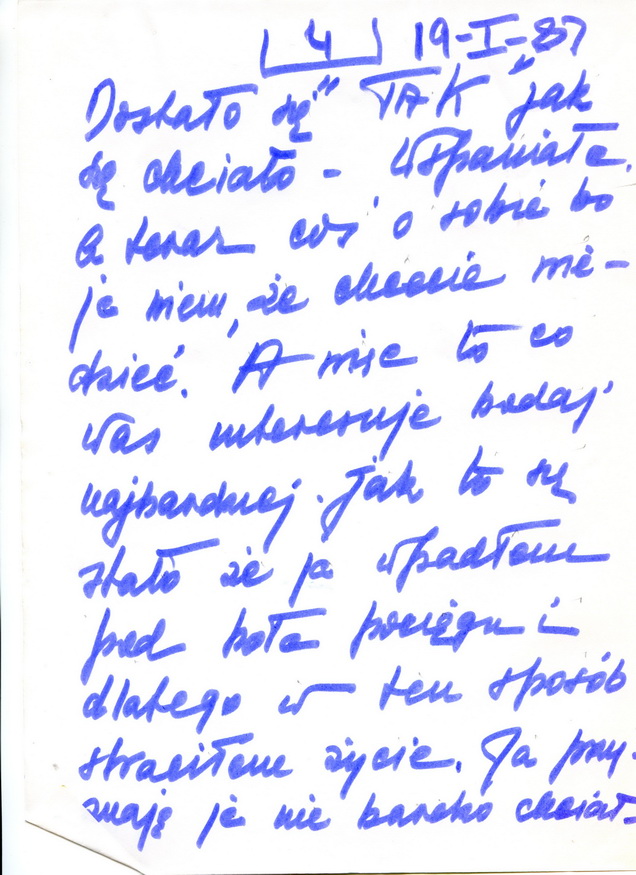 4 19-I-87
Dostało się "TAK" jak
się chciało - wspaniałe.
a teraz coś o sobie bo
ja wiem, że chcecie wie-
dzieć. A więc to co
was interesuje bodaj
najbardziej. Jak to się
stało że ja wpadłem
pod koła pociągu i
dlatego w ten sposób
straciłem życie. Ja przy-
znaję ja nie bardzo chciał-